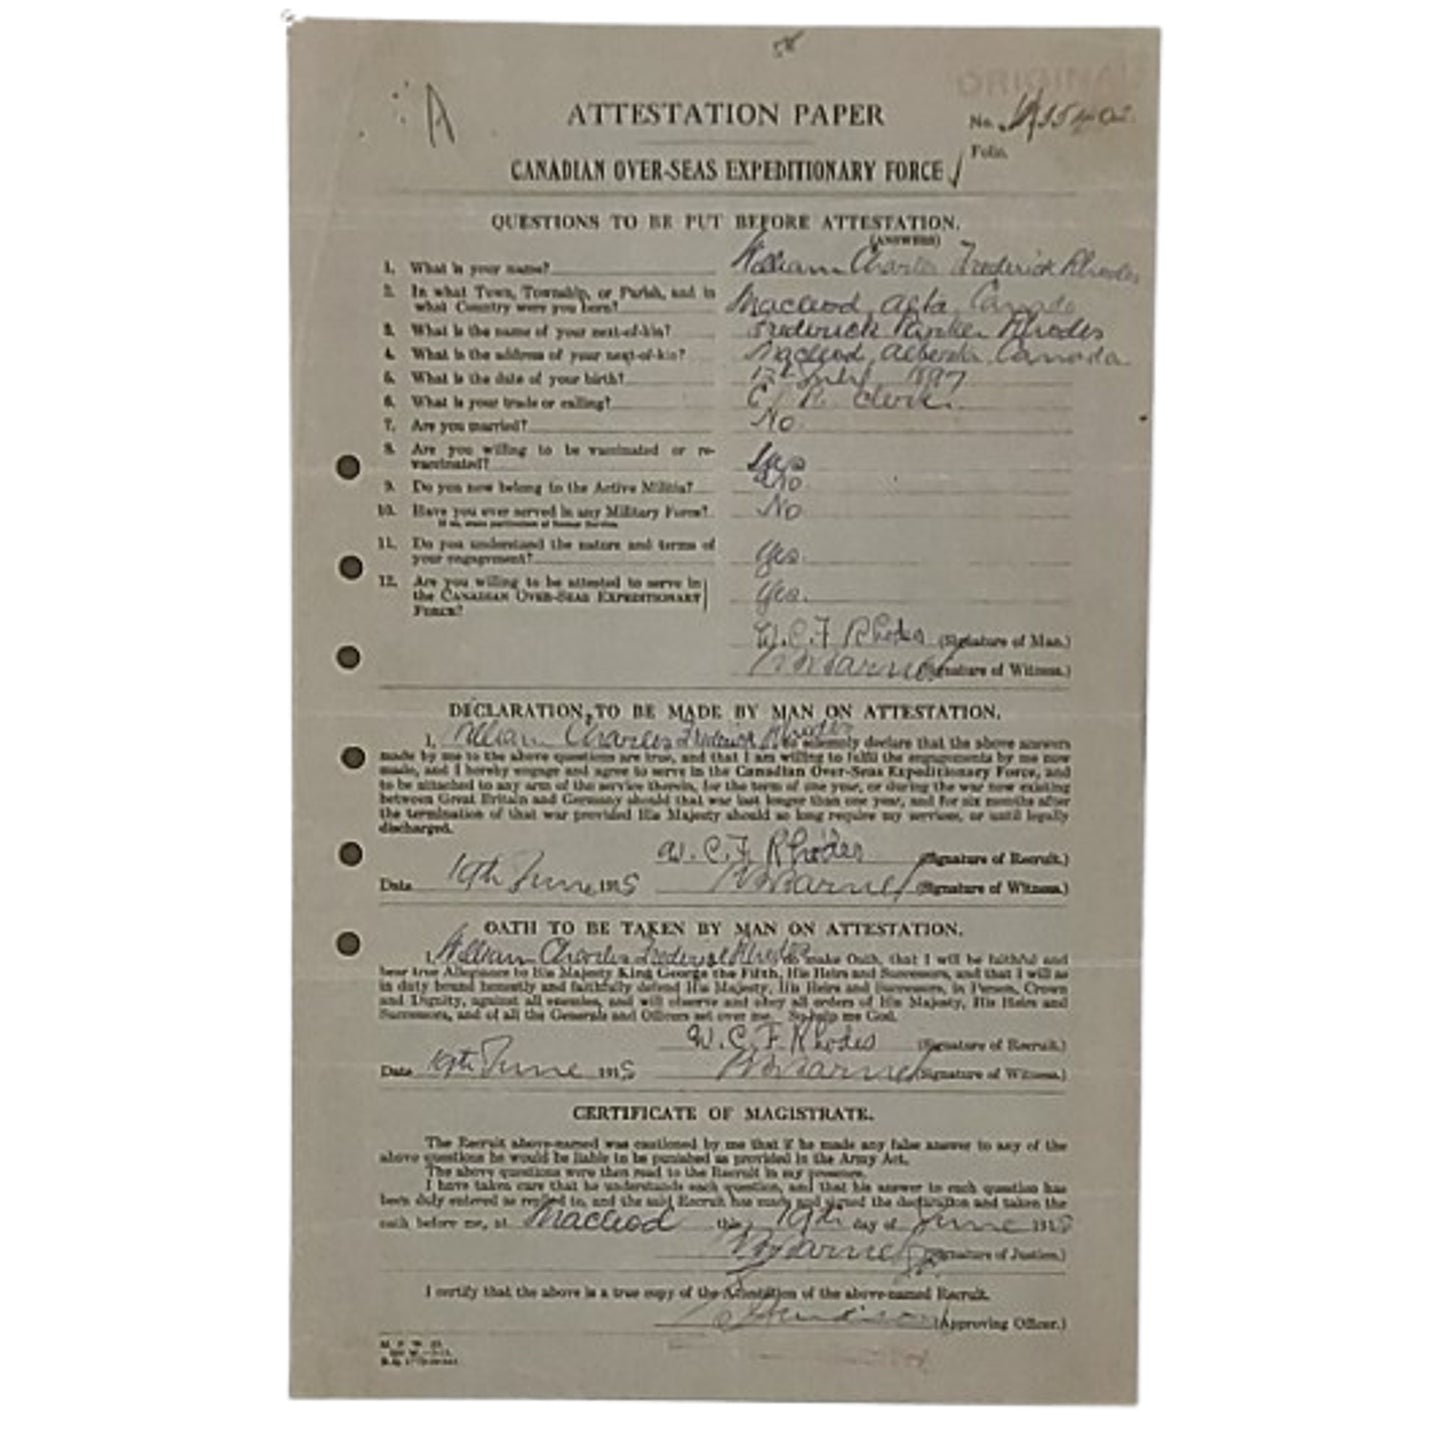 A
ATTESTATION PAPER
No.
Folio.
CANADIAN OVER-SEAS EXPEDITIONARY FORCE
QUESTIONS TO BE PUT BEFORE ATTESTATION.
(ANSWERS)
1. What is your name? William Charles Frederick Rhodes
2. In what Town, Township, or Parish, and in
what Country were you born? Macleod, Alta, Canada
3. What is the name of your next-of-kin? Frederick Parker Rhodes
4. What is the address of your next-of-kin? Macleod, Alberta, Canada
5. What is the date of your birth? July 1897
6. What is your trade or calling? C. R. Clerk.
7. Are you married? No
8. Are you willing to be vaccinated or re-
vaccinated? Yes
9. Do you now belong to the Active Militia? No
10. Have you ever served in any Military Force? No
If so, state particulars of former Service.
11. Do you understand the nature and terms of
your engagement? Yes.
12. Are you willing to be attested to serve in
the CANADIAN OVER-SEAS EXPEDITIONARY Yes.
FORCE?
W. C. F Rhodes (Signature of Man.)
(Signature of Witness.)
DECLARATION TO BE MADE BY MAN ON ATTESTATION.
I, William Charles Frederick Rhodes, do solemnly declare that the above answers
made by me to the above questions are true, and that I am willing to fulfil the engagements by me now
made, and I hereby engage and agree to serve in the Canadian Over-Seas Expeditionary Force, and
to be attached to any arm of the service therein, for the term of one year, or during the war now existing
between Great Britain and Germany should that war last longer than one year, and for six months after
the termination of that war provided His Majesty should so long require my services, or until legally
discharged.
W. C. F. Rhodes (Signature of Recruit.)
Date 19th June 1915 (Signature of Witness.)
OATH TO BE TAKEN BY MAN ON ATTESTATION.
I, William Charles Frederick Rhodes, do make Oath, that I will be faithful and
bear true Allegiance to His Majesty King George the Fifth, His Heirs and Successors, and that I will as
in duty bound honestly and faithfully defend His Majesty, His Heirs and Successors, in Person, Crown
and Dignity, against all enemies, and will observe and obey all orders of His Majesty, His Heirs and
Successors, and of all the Generals and Officers set over me. So help me God.
W. C. F. Rhodes (Signature of Recruit.)
Date 19th June 1915 (Signature of Witness.)
CERTIFICATE OF MAGISTRATE.
The Recruit above-named was cautioned by me that if he made any false answer to any of the
above questions he would be liable to be punished as provided in the Army Act.
The above questions were then read to the Recruit in my presence.
I have taken care that he understands each question, and that his answer to each question has
been duly entered as replied to, and the said Recruit has made and signed the declaration and taken the
oath before me, at Macleod this 19th day of June 1915
(Signature of Justice.)
I certify that the above is a true copy of the Attestation of the above-named Recruit.
(Approving Officer.)